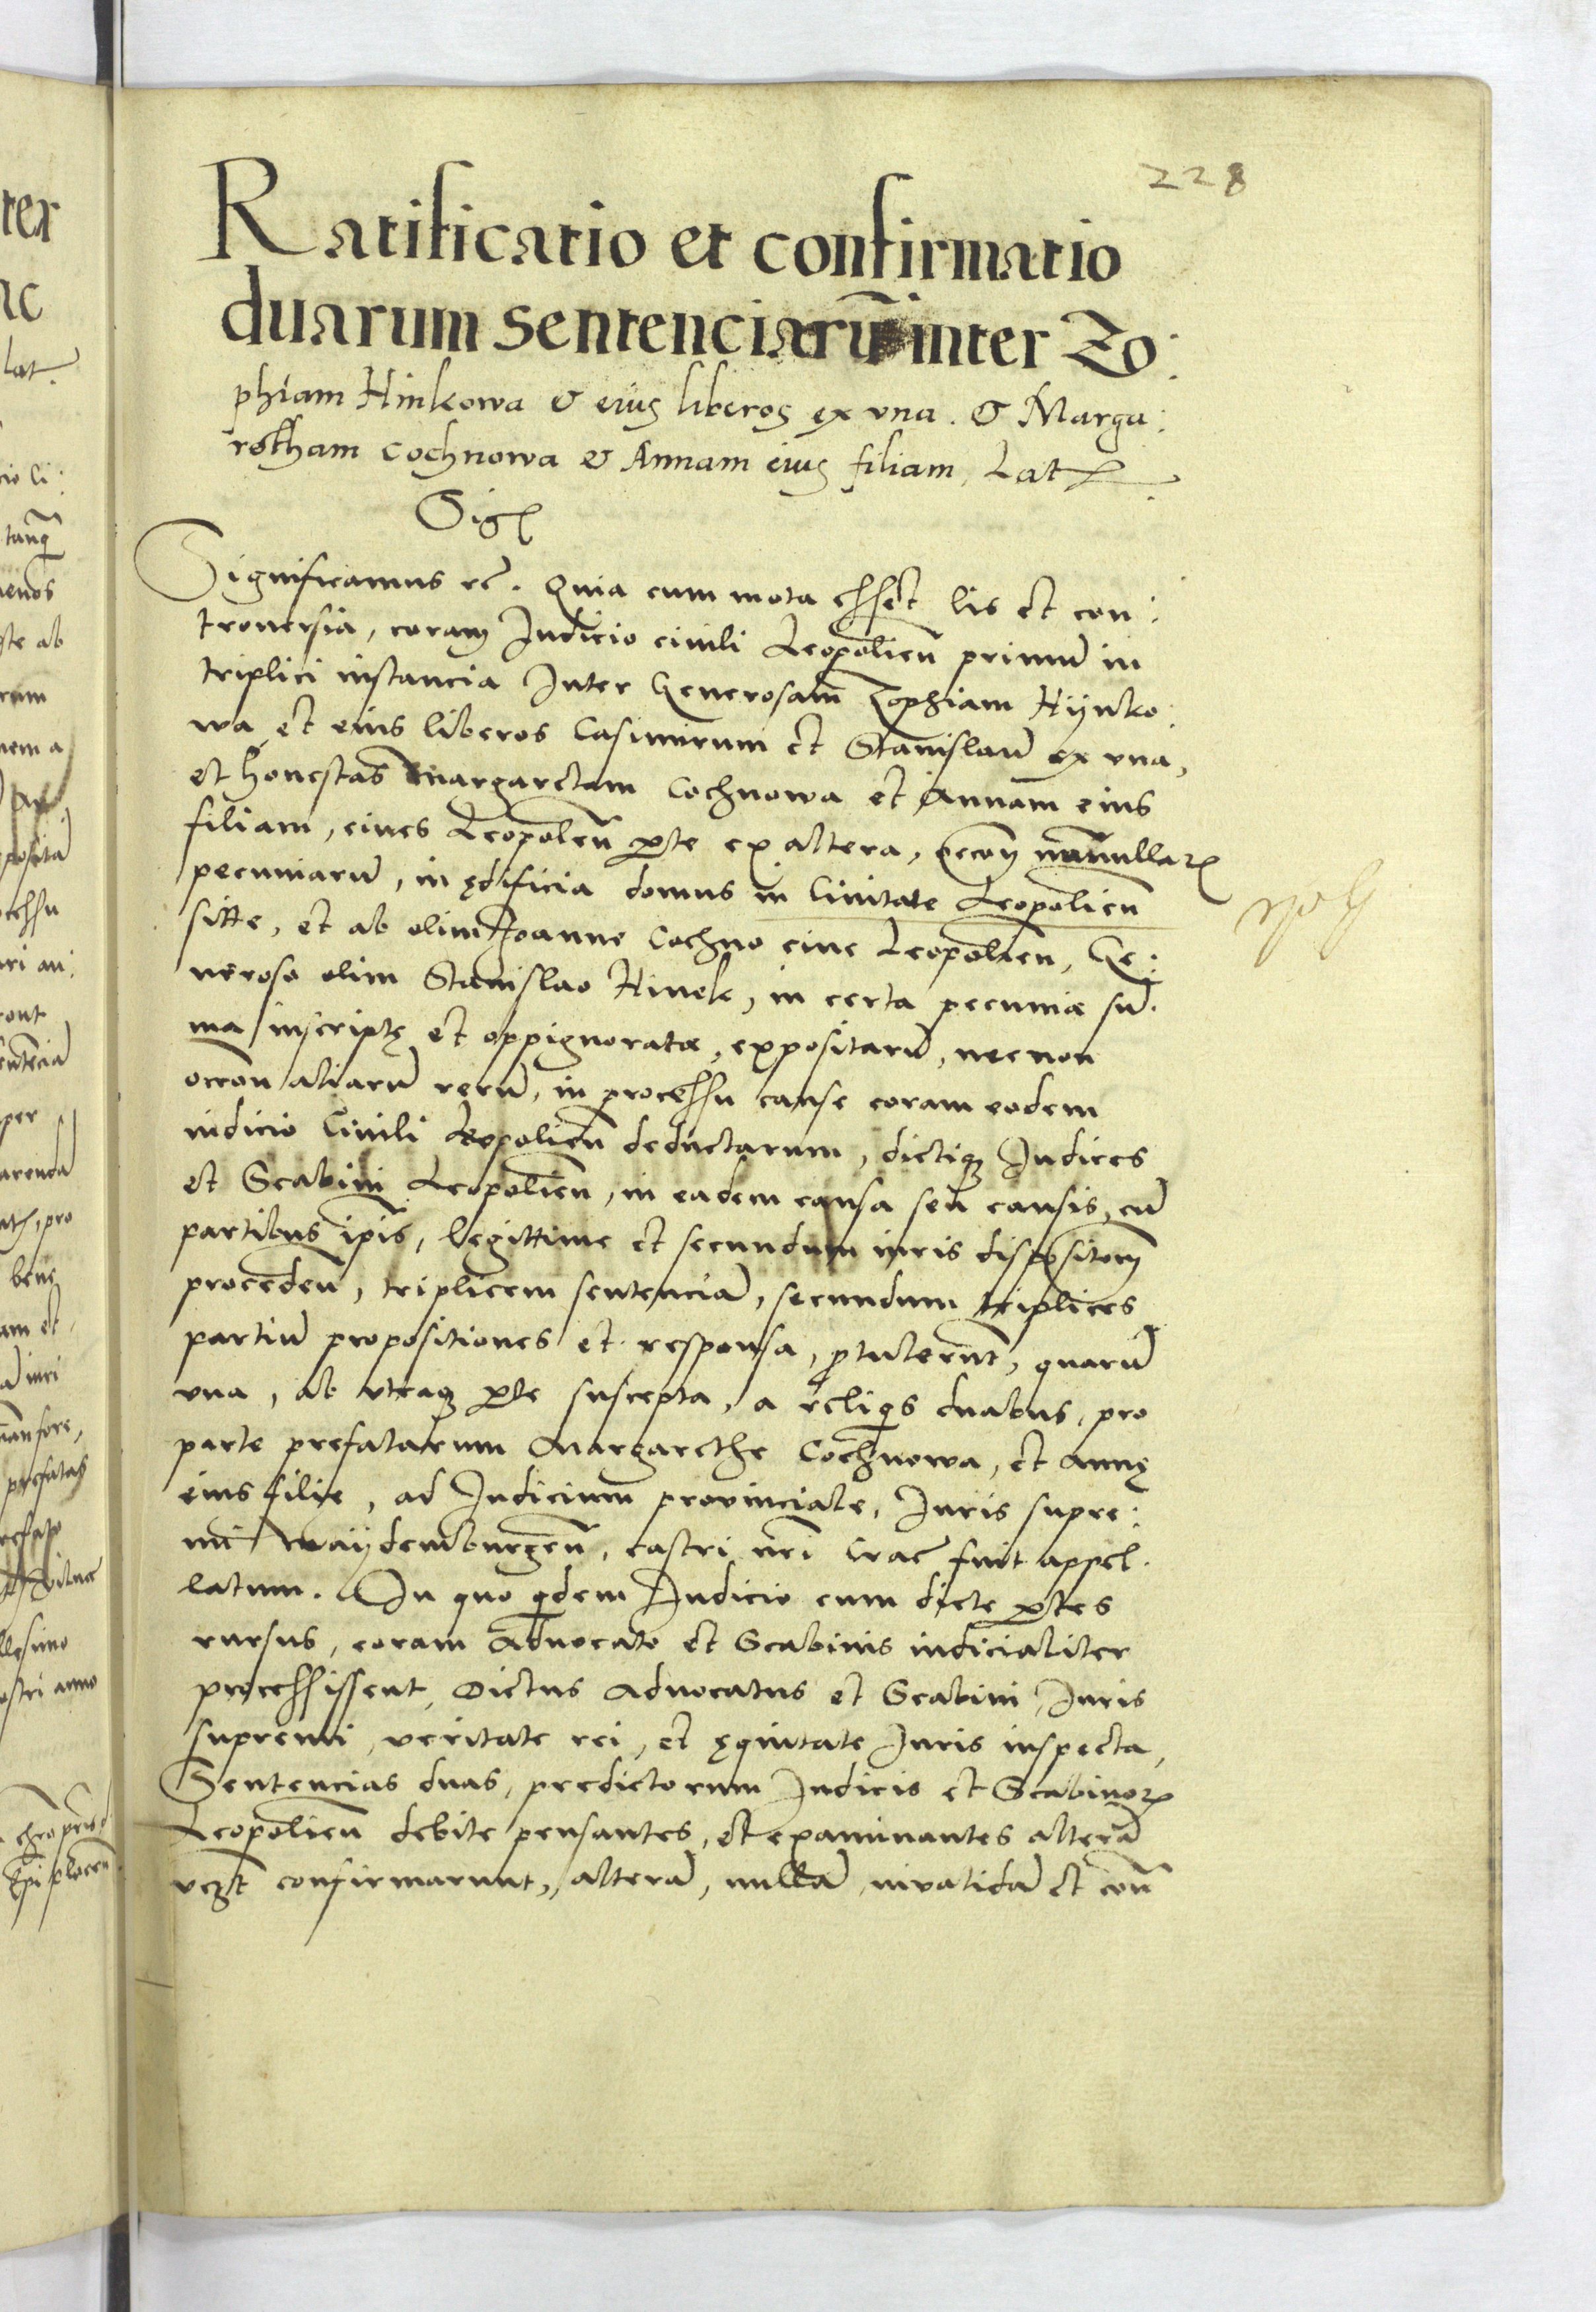 228
Ratificatio et confirmatio
duarum sentenciarū inter Zo:
phiam Hinkowa & eius liberos ex vna. & Marga:
retham Cochnowa & Annam eius filiam, Lat
Sig
Significamus &c. Quia cum mota esset lis et con:
trouersia, coram Iudicio ciuili Leopolien̄ primū in
triplici instancia Inter Generosam Zophiam Hÿnko:
wa et eius liberos Casimirum et Stanislaū ex vna,
et honestas Margaretam Cochnowa et Annam eius
filiam, ciues Leopolen̄ pte ex altera, rōne nonnullarꝝ
pecuniarū, in ędificia domus in Ciuitate Leopolien̄
sitte, et ab olim Joanne Cochno ciue Leopolien̄, Ge:
neroso olim Stanislao Hinek, in certa pecuniæ sū:
ma inscriptę et oppignoratæ, expositarū, necnon
occōn aliarū rerū, in processu causę coram eodem
iudicio Ciuili Leopolien̄ deductarum, dictiqȝ Iudices
et Scabini Leopolien̄, in eadem causa seu causis, cū
partibus ip̄is, legittime et secundum iuris dispositōn̄
proceden̄, triplicem sentenciā, secundum triplices
partiū propositiones et responsa, ꝓtulerūt, quarū
vna, ab vtraqȝ pte suscepta, a reliqis duabus, pro
parte prefatarum Margarethe Cochnowa, et Annę
eius filie, ad Iudicium prouinciale, Iuris supre:
mi Maÿdemburgen̄, castri nr̄i Crac̄ fuit appel:
latum. In quo qdem Iudicio cum dicte ptes
rursus, coram Aduocato et Scabinis iudicialiter
processissent, Dictus Aduocatus et Scabini Iuris
supremi, veritate rei, et ęquitate Iuris inspecta,
Sentencias duas, predictorum Iudicis et Scabinorꝝ
Leopolien̄ debite pensantes, et examinantes alterā
vczt confirmarunt, alterā, nullā, inualidā et con̄